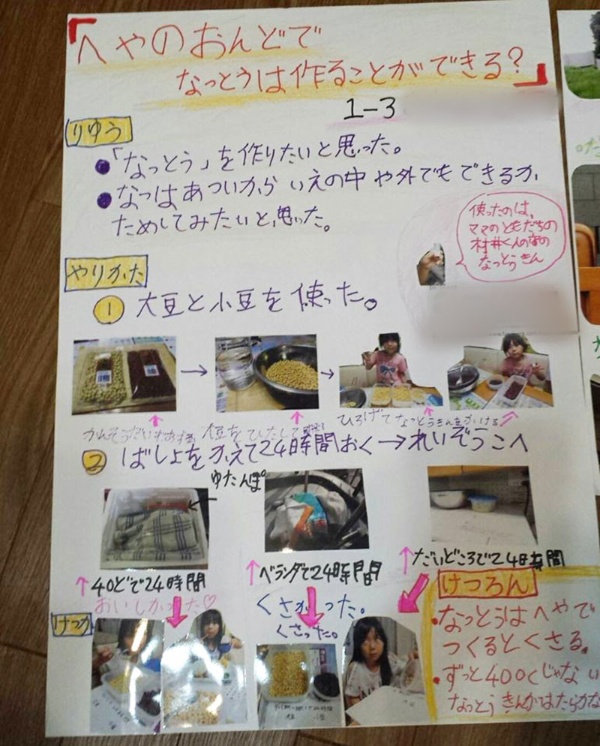 「へやのおんどで
なっとうは作ることができる?」
1-3
りゆう
●「なっとう」を作りたいと思った。
●なつはあついから いえの中や外でもできるか
ためしてみたいと、思った。
使ったのは、
ママのともだちの
村井くんの家の
なっとうきん
やりかた
① 大豆と小豆を使った。
→ →
大豆をひたして
ひろげてなっとうきんをかける
② ばしょをかえて24時間おく→れいぞうこへ
ゆたんぽ
↑40どで24時間
↑ベランダで24時間
↑だいどころで24時間
おいしかった♡
くさかった。
くさった。
けっか
けつろん
・なっとうはへやで
つくるとくさる。
・ずっと40℃じゃない
なっとうきんがはたらかな